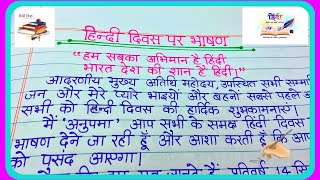 हिन्दी दिवस पर भाषण
“हम सबका अभिमान है हिंदी
भारत देश की शान है हिंदी।”
आदरणीय मुख्य अतिथि महोदय, उपस्थित सभी सम्मा
जन और मेरे प्यारे भाइयों और बहनों सबसे पहले आ
सभी को हिन्दी दिवस की हार्दिक शुभकामनाएं।
मैं ‘अनुपमा’ आप सभी के समक्ष हिन्दी दिवस
भाषण देने जा रही हूँ और आशा करती हूँ कि आप
को पसंद आएगा।
प्रतिवर्ष 14 सि